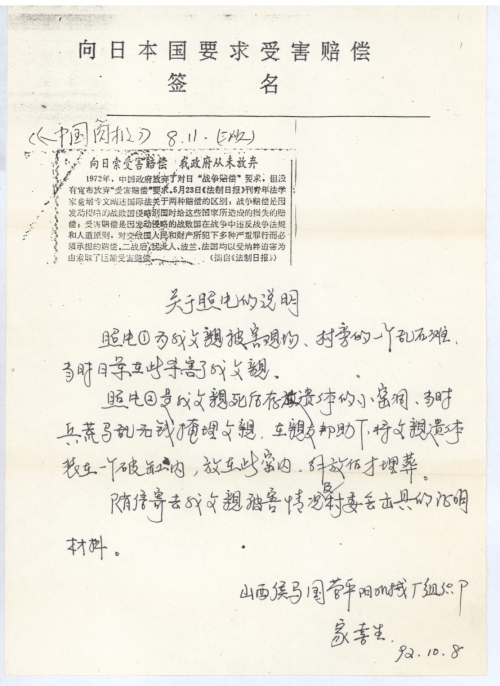 向日本国要求受害赔偿
签名
《中国商报》8.11.(二版)
向日索受害赔偿 我政府从未放弃
1972年,中国政府放弃了对日“战争赔偿”要求,但没
有宣布放弃“受害赔偿”要求。5月23日《法制日报》刊青年法学
家童增专文阐述国际法关于两种赔偿的区别:战争赔偿是因
发动侵略的战败国侵略别国时给这些国家所造成的损失的赔
偿;受害赔偿是因发动侵略的战败国在战争中违反战争法规
和人道原则,对交战国人民和财产所犯下多种严重罪行而必
须承担的赔偿。二战后,犹太人、波兰、法国均以受纳粹迫害为
由索取了巨额受害赔偿。 (摘自《法制日报》)
关于照片的说明
照片①为我父親被害现场、村旁的一个乱石滩,
当时日军在此杀害了我父親。
照片②是我父親死后存放遗体的小窑洞,当时
兵荒马乱无钱掩埋父親,在親友帮助下,将父親遗体
装在一个破缸内,放在此窑内,解放后才埋葬。
随信寄去我父親被害情况及村委会出具的证明
材料。
山西侯马国营平阳机械厂组织
家喜生
92.10.8